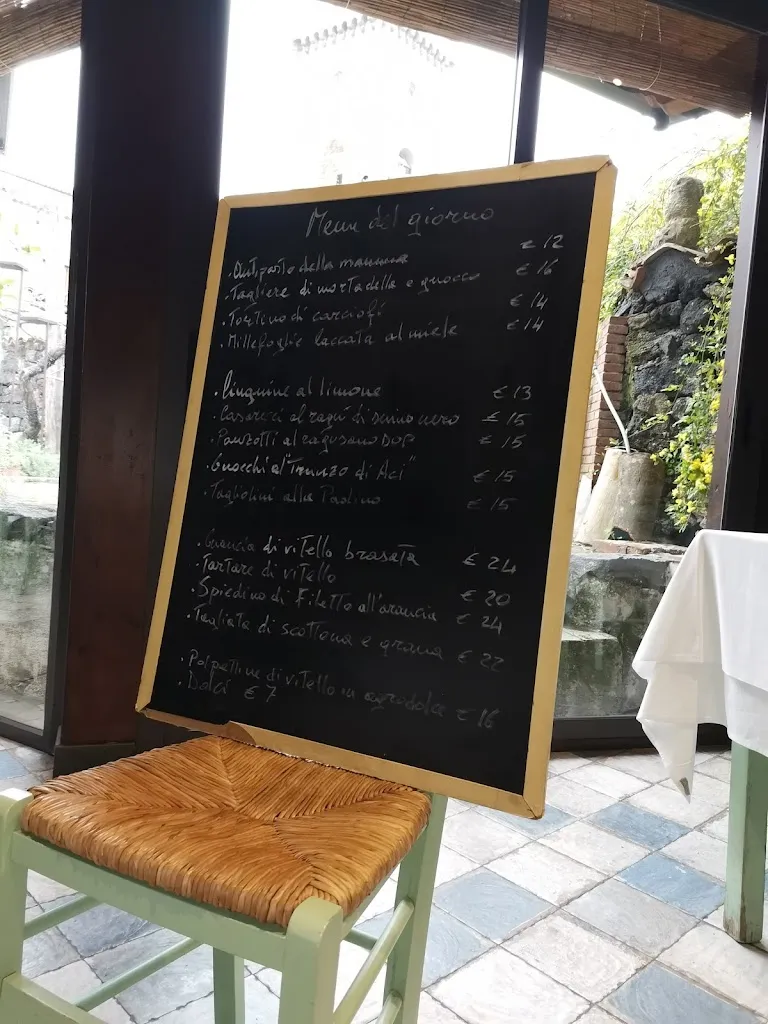 Menu del giorno
. Antipasto della mamma € 12
. Tagliere di mortadella e gnocco € 16
. Tortino di carciofi € 14
. Millefoglie laccata al miele € 14
. Linguine al limone € 13
. Casarecci al ragù di suino nero € 15
. Panzotti al ragusano DOP € 15
. Gnocchi al "Trunzo di Aci" € 15
. Tagliolini alla Paolino € 15
. Guancia di vitello brasata € 24
. Tartare di vitello € 20
. Spiedino di Filetto all'arancia € 24
. Tagliata di scottona e grana € 22
. Polpettine di vitello in agrodolce € 16
. Dolci € 7